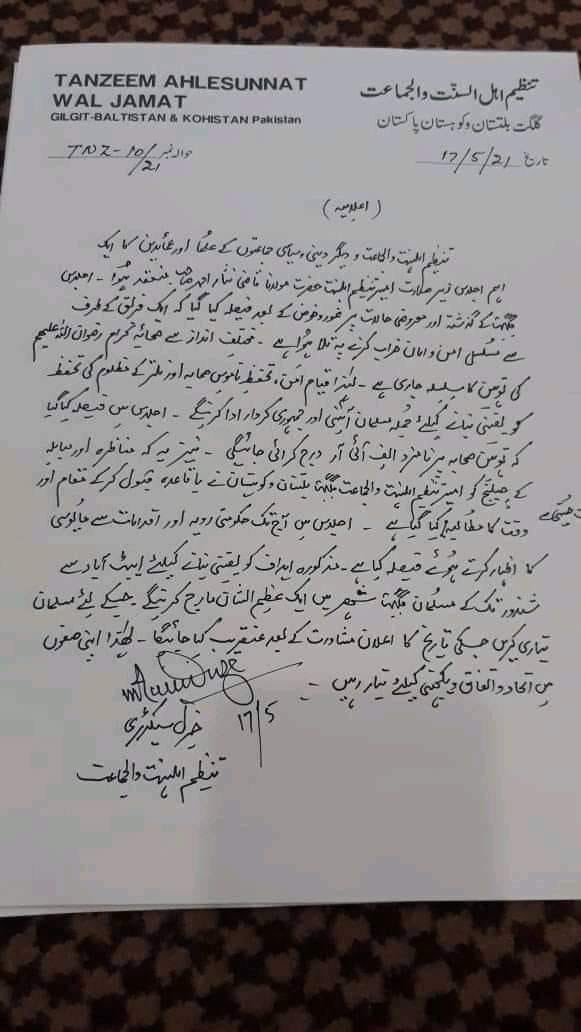 TANZEEM AHLESUNNAT
WAL JAMAT
GILGIT-BALTISTAN & KOHISTAN Pakistan
تنظیم اہل السنّت والجماعت
گلگت بلتستان و کوہستان پاکستان
حوالہ نمبر TNZ-10/21
تاریخ 17/5/21
(اعلامیہ)
تنظیم اہلسنت والجماعت و دیگر دینی و سیاسی جماعتوں کے علماء اور عمائدین کا ایک
اہم اجلاس زیر صدارت امیر تنظیم اہلسنت حضرت مولانا قاضی نثار احمد صاحب منعقد ہوا ۔ اجلاس
گلگت کے گذشتہ اور معروضی حالات پر غور و خوض کے بعد فیصلہ کیا گیا کہ ایک فریق کے طرف
سے مسلسل امن و امان خراب کرنے پہ تلا ہوا ہے ۔ مختلف انداز سے صحابہ کرام رضوان اللہ علیھم
کی توہین کا سلسلہ جاری ہے ۔ لہٰذا قیام امن، تحفظ ناموس صحابہ اور نلتر کے مظلوم کی تحفظ
کو یقینی بنانے کیلئے جملہ مسلمان آئینی اور جمہوری کردار ادا کرینگے ۔ اجلاس میں فیصلہ کیا گیا
کہ توہین صحابہ پر نامزد ایف آئی آر درج کرائی جائیگی ۔ نیز یہ کہ مناظرہ اور مباہلہ
کے چیلنج کو امیر تنظیم اہلسنت والجماعت گلگت بلتستان و کوہستان نے باقاعدہ قبول کرکے مقام اور
وقت کا مطالبہ کیا گیا ہے ۔ اجلاس میں آج تک حکومتی رویہ اور اقدامات سے مایوسی
کا اظہار کرتے ہوئے فیصلہ کیا ہے ۔ مذکورہ اہداف کو یقینی بنانے کیلئے ایبٹ آباد سے
شندور تک کے مسلمان گلگت شہر میں ایک عظیم الشان مارچ کرینگے ۔ جسکے لئے مسلمان
تیاری کریں جسکی تاریخ کا اعلان مشاورت کے بعد عنقریب کیا جائیگا ۔ لھٰذا اپنی صفوں
میں اتحاد و اتفاق و یکجہتی کیلئے تیار رہیں ۔
17/5
جنرل سیکرٹری
تنظیم اہلسنت والجماعت